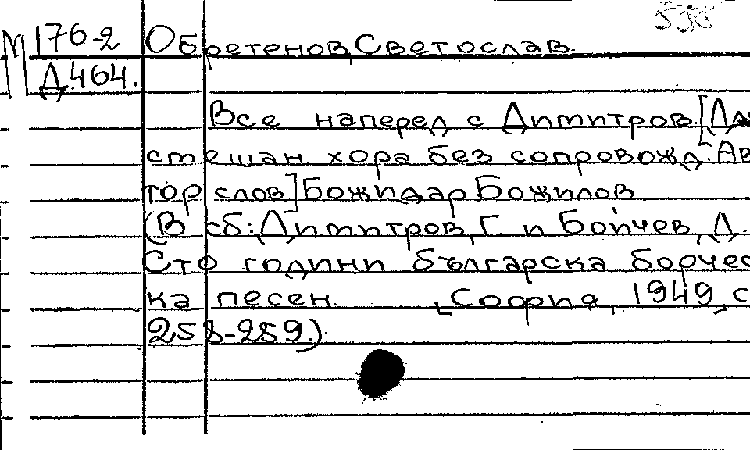 538
М 176-2 Обретенов, Светослав.
Д 464.
Все наперед с Димитров. [Для
смешан. хора без сопровожд. Ав
тор слов] Божидар Божилов
(В сб.: Димитров, Г. и Бойчев, Д.
Сто години българска борчес
ка песен. София, 1949, с.
258-259.)